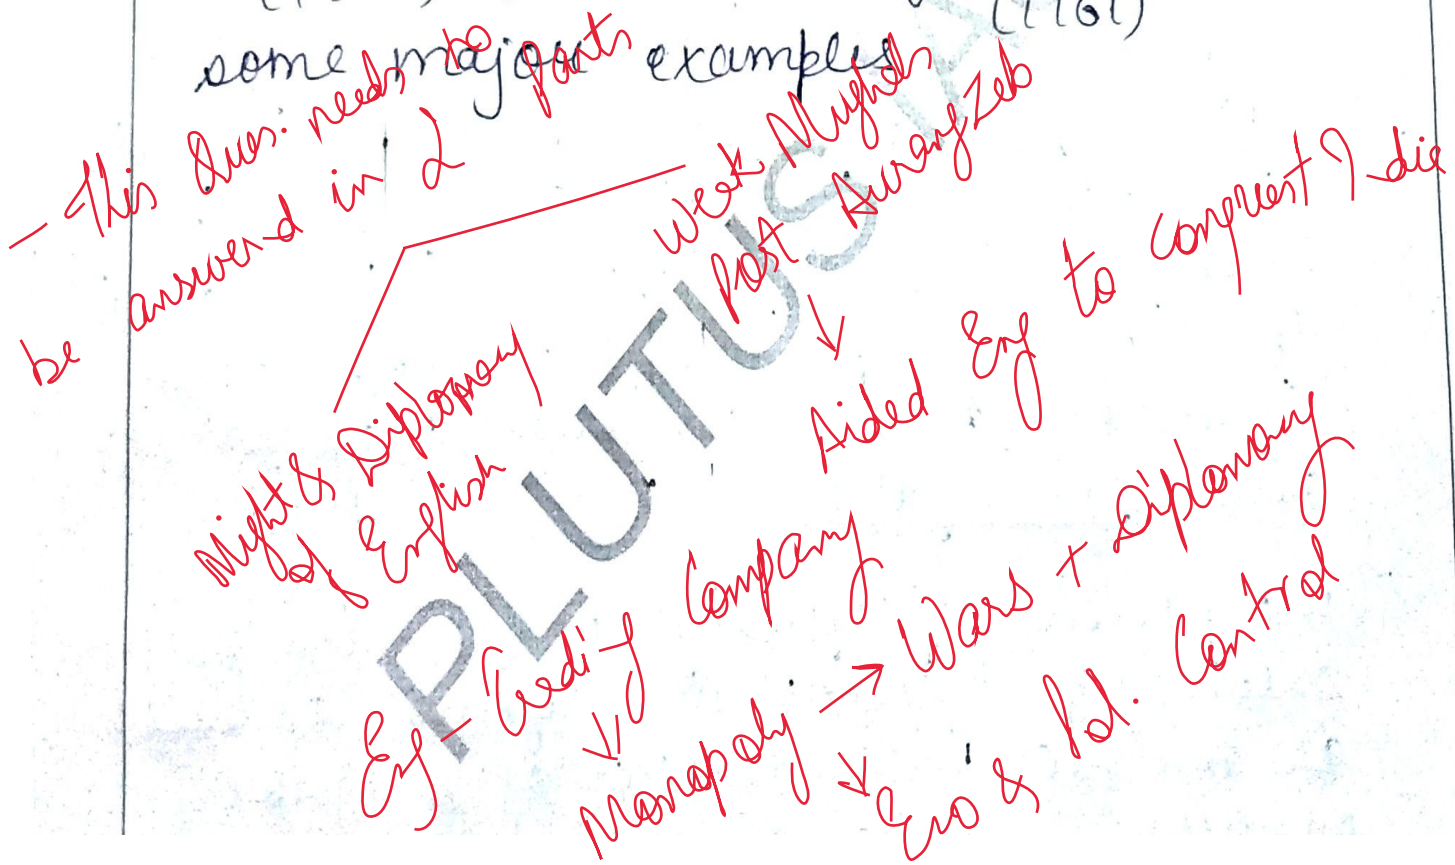 (1761)
some major examples
- This Ques. needs to
be answerd in 2 parts
Week Mughals
Post Aurangzeb
↓
Aided Eng to conquest I die
Might & Diplomacy
of English
Eng - Trading Company
↓
Monopoly → Wars + Diplomacy
↓
Eco & Pol. Control
PLUTUS IA